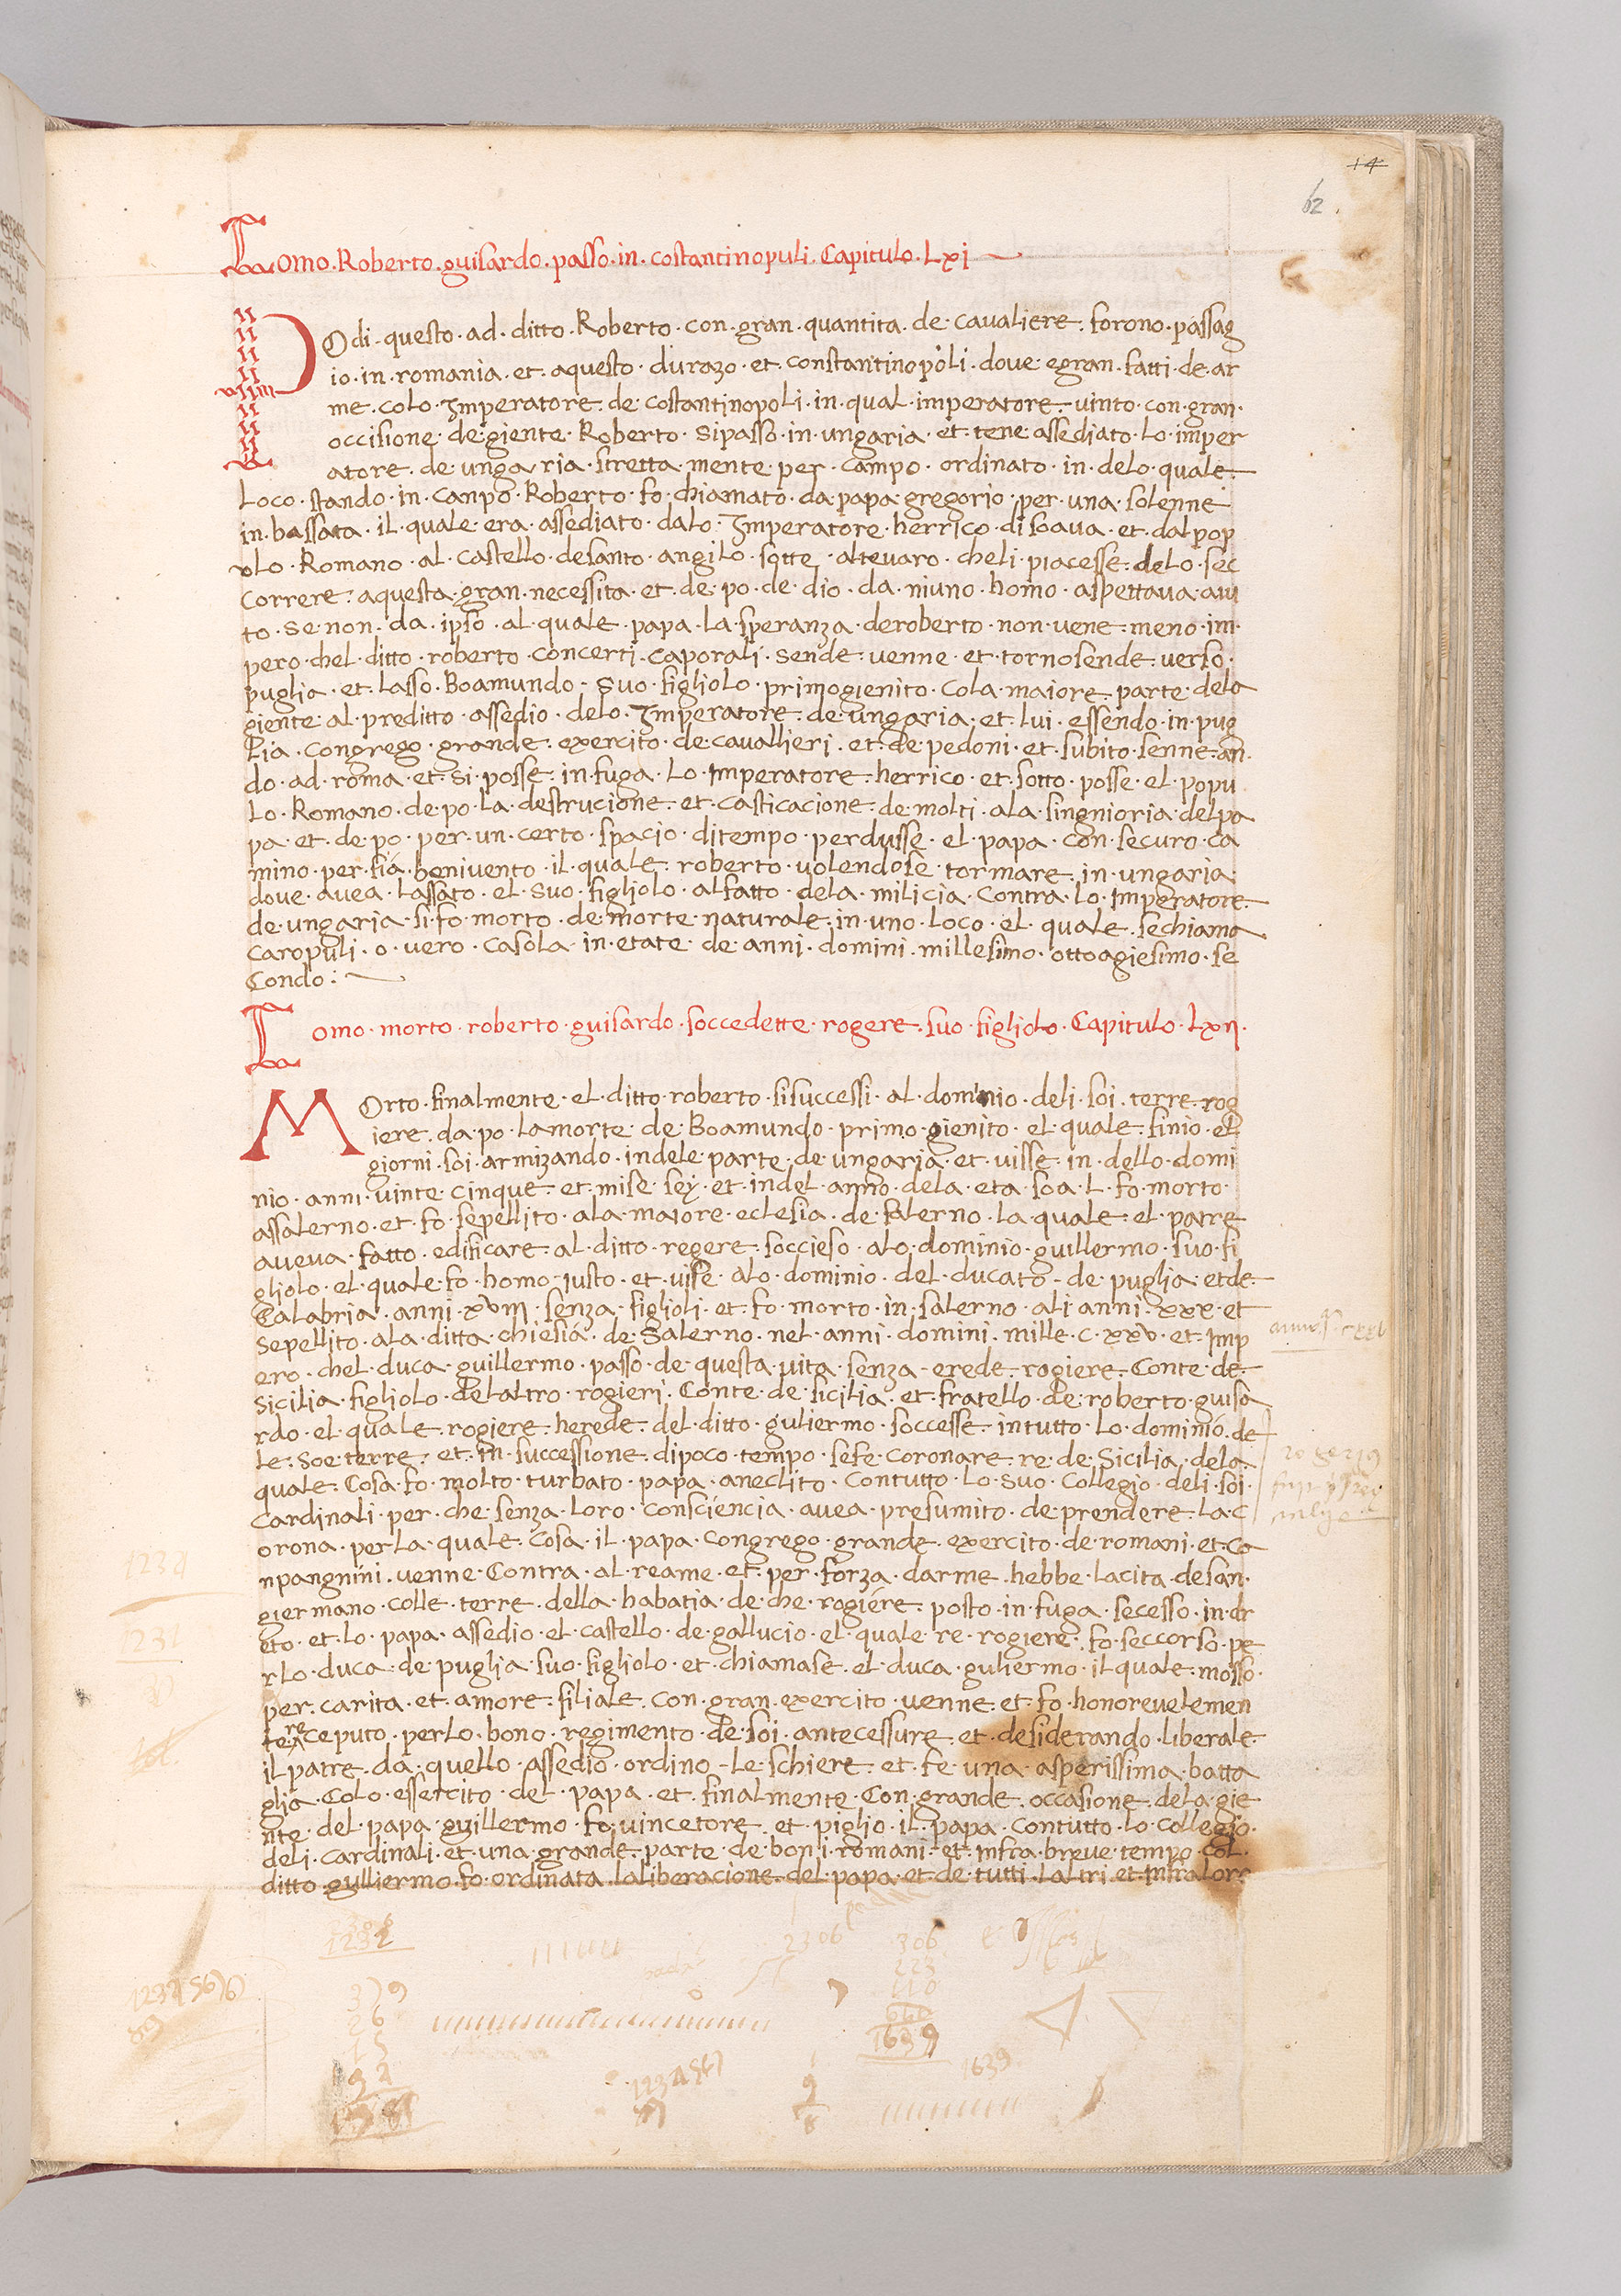 14
62.
Lomo. Roberto. guisardo. passo. in. costantinopuli. Capitulo. Lxi
POdi. questo. ad. ditto. Roberto. con. gran. quantita. de. cavaliere. forono. passag
io. in. romania. et. aquesto. durazo. et. constantinopoli. dove. egran. fatti. de. ar
me. colo. Imperatore. de costantinopoli. in. qual. imperatore. vinto. con. gran.
occisione. de. giente. Roberto. sipasso. in. ungaria. et. tene. assediato. lo. imper
atore. de. ungaria. stretta. mente. per. campo. ordinato. in. delo. quale
Loco. stando. in. canpo. Roberto. fo. chiamato. da. papa. gregorio. per. una. solenne
in. bassata. il. quale. era. assediato. dalo. Imperatore. herrico. di soava. et. dal pop
olo. Romano. al. castello. desanto. angilo. sotte. altevaro. cheli. piacesse. delo. sec
correre. aquesta. gran. necessita. et. de. po. de. dio. da. niuno. homo. aspettava. aiu
to. se non. da. ipso. al. quale. papa. la. speranza. deroberto. non. vene. meno. im.
pero. chel. ditto. roberto. concerti. caporali. sende. venne. et. tornosende. verso.
puglia. et. lasso. Boamundo. suo. figliolo. primogienito. cola. maiore. parte. dela
giente. al. preditto. assedio. delo. Imperatore. de. ungaria. et. lui. essendo. in. pug
lia. congrego. grande. exercito. de. cavallieri. et. de. pedoni. et. subito. senne. an.
do. ad. roma. et. si. posse. in. fuga. lo. imperatore. herrico. et. sotto. posse. el. popu
lo. Romano. de. po. la. destrucione. et. casticacione. de. molti. ala. singnioria. delpa
pa. et. de. po. per. un. certo. spacio. ditempo. perdusse. el. papa. con. securo. ca
mino. per. fia. benivento. il. quale. roberto. volendose. tormare. in. ungaria
dove. avea. lassato. el. suo. figliolo. alfatto. dela. milicia. contra. lo. imperatore.
de. ungaria. si. fo. morto. de. morte. naturale. in. uno. loco. el. quale. sechiama
caropuli. o. vero. casola. in. etate. de. anni. domini. millesimo. ottoagiesimo. se
condo:
Lomo. morto. roberto. guisardo. soccedette. rogere. suo. figliolo. Capitulo. Lxii.
MOrto. finalmente. el. ditto. roberto. sisuccessi. al. dominio. deli. soi. terre. rog
iere. da. po. lamorte. de. Boamundo. primo. gienito. el. quale. finio. el
giorni. soi. armizando. indele. parte. de. ungaria. et. visse. in. dello. domi
nio. anni. vinte. cinque. et. mise. sei. et. indel. anno. dela. eta. soa. L. fo. morto.
assalerno. et. fo. sepellito. ala. maiore. eclesia. de. salerno. la. quale. el. patre
aveva. fatto. edificare. al. ditto. regere. soccieso. alo. dominio. guillermo. suo. fi
gliolo. el. quale. fo. homo. iusto. et. visse. alo. dominio. del. ducato. de. puglia. et de.
Calabria. anni. xviii. senza. figlioli. et. fo. morto. in. salerno. ali. anni. xxx. et
sepellito. ala. ditta. chiesia. de. salerno. nel. anni. domini. mille. c. xxv. et. imp
ero. chel. duca. guillermo. passo. de. questa. vita. senza. erede. rogiere. Conte. de.
sicilia. figliolo. delaltro. rogieri. Conte. de. sicilia. et. fratello. de. roberto. guisa
rdo. el. quale. rogiere. herede. del. ditto. guliermo. soccesse. intutto. lo. dominio. de
le. soe. terre. et. in. successione. dipoco. tempo. sefe. coronare. re. de. Sicilia. dela
quale. cosa. fo. molto. turbato. papa. aneclito. contutto. lo. suo. collegio. deli. soi.
cardinali. per. che. senza. loro. consciencia. avea. presumito. de. prendere. la. c
orona. perla. quale. cosa. il. papa. congrego. grande. exercito. de. romani. et. co
npangnini. venne. Contra. al. reame. et. per. forza. darme. hebbe. lacita. desan.
giermano. colle. terre. della. habatia. de. che. rogiere. posto. in. fuga. secesso. in. dr
eto. et. lo. papa. assedio. el. castello. de. gallucio. el. quale. re. rogiere. fo. seccorso. pe
rlo. duca. de. puglia. suo. figliolo. et. chiamase. el. duca. guliermo. il quale. mosso.
per. carita. et. amore. filiale. con. gran. exercito. venne. et. fo. honorevelemen
te receputo. perlo. bono. regimento. de. soi. antecessure. et. desiderando. liberale.
il patre. da. quello. assedio. ordino. le. schiere. et. fe. una. asperissima. batta
glia. colo. essercito. del. papa. et. finalmente. con. grande. occasione. dela. gie
nte. del. papa. guillermo. fo. vincetore. et. piglio. il. papa. contutto. lo. collegio.
deli. cardinali. et. una. grande. parte. de. boni. romani. et. infra. breve. tempo. col.
ditto. gulliermo. fo. ordinata. laliberacione. del. papa. et. de. tutti. laltri. et. infralorr
1232
1231
2306
306
223
110
1639
1639
26
15
1234567